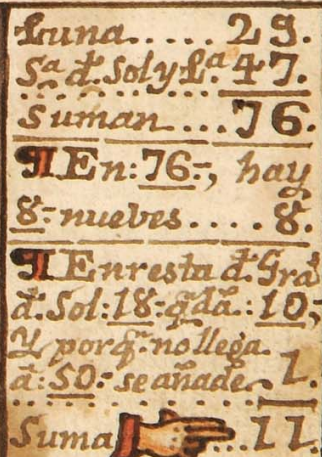 Luna..... 29.
Sª d. Sol y Lª. 47.
Suman.... 76.
¶ En: 76-, hay
8- nueves.... 8.
¶ En resta d. Gra.
d. Sol: 18- q̃dã.: 10,
Y porq̃. no llega
a: 50- se añade. 1.
Suma .... 11